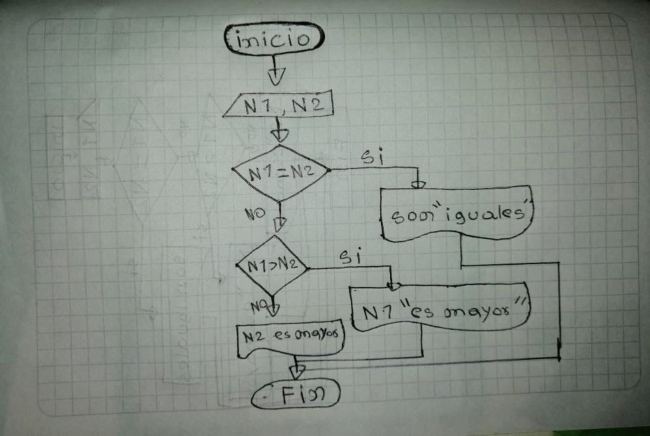 inicio
N1, N2
N1=N2
Si
NO
son "iguales"
N1>N2
Si
NO
N1 "es mayor"
N2 es mayor
Fin